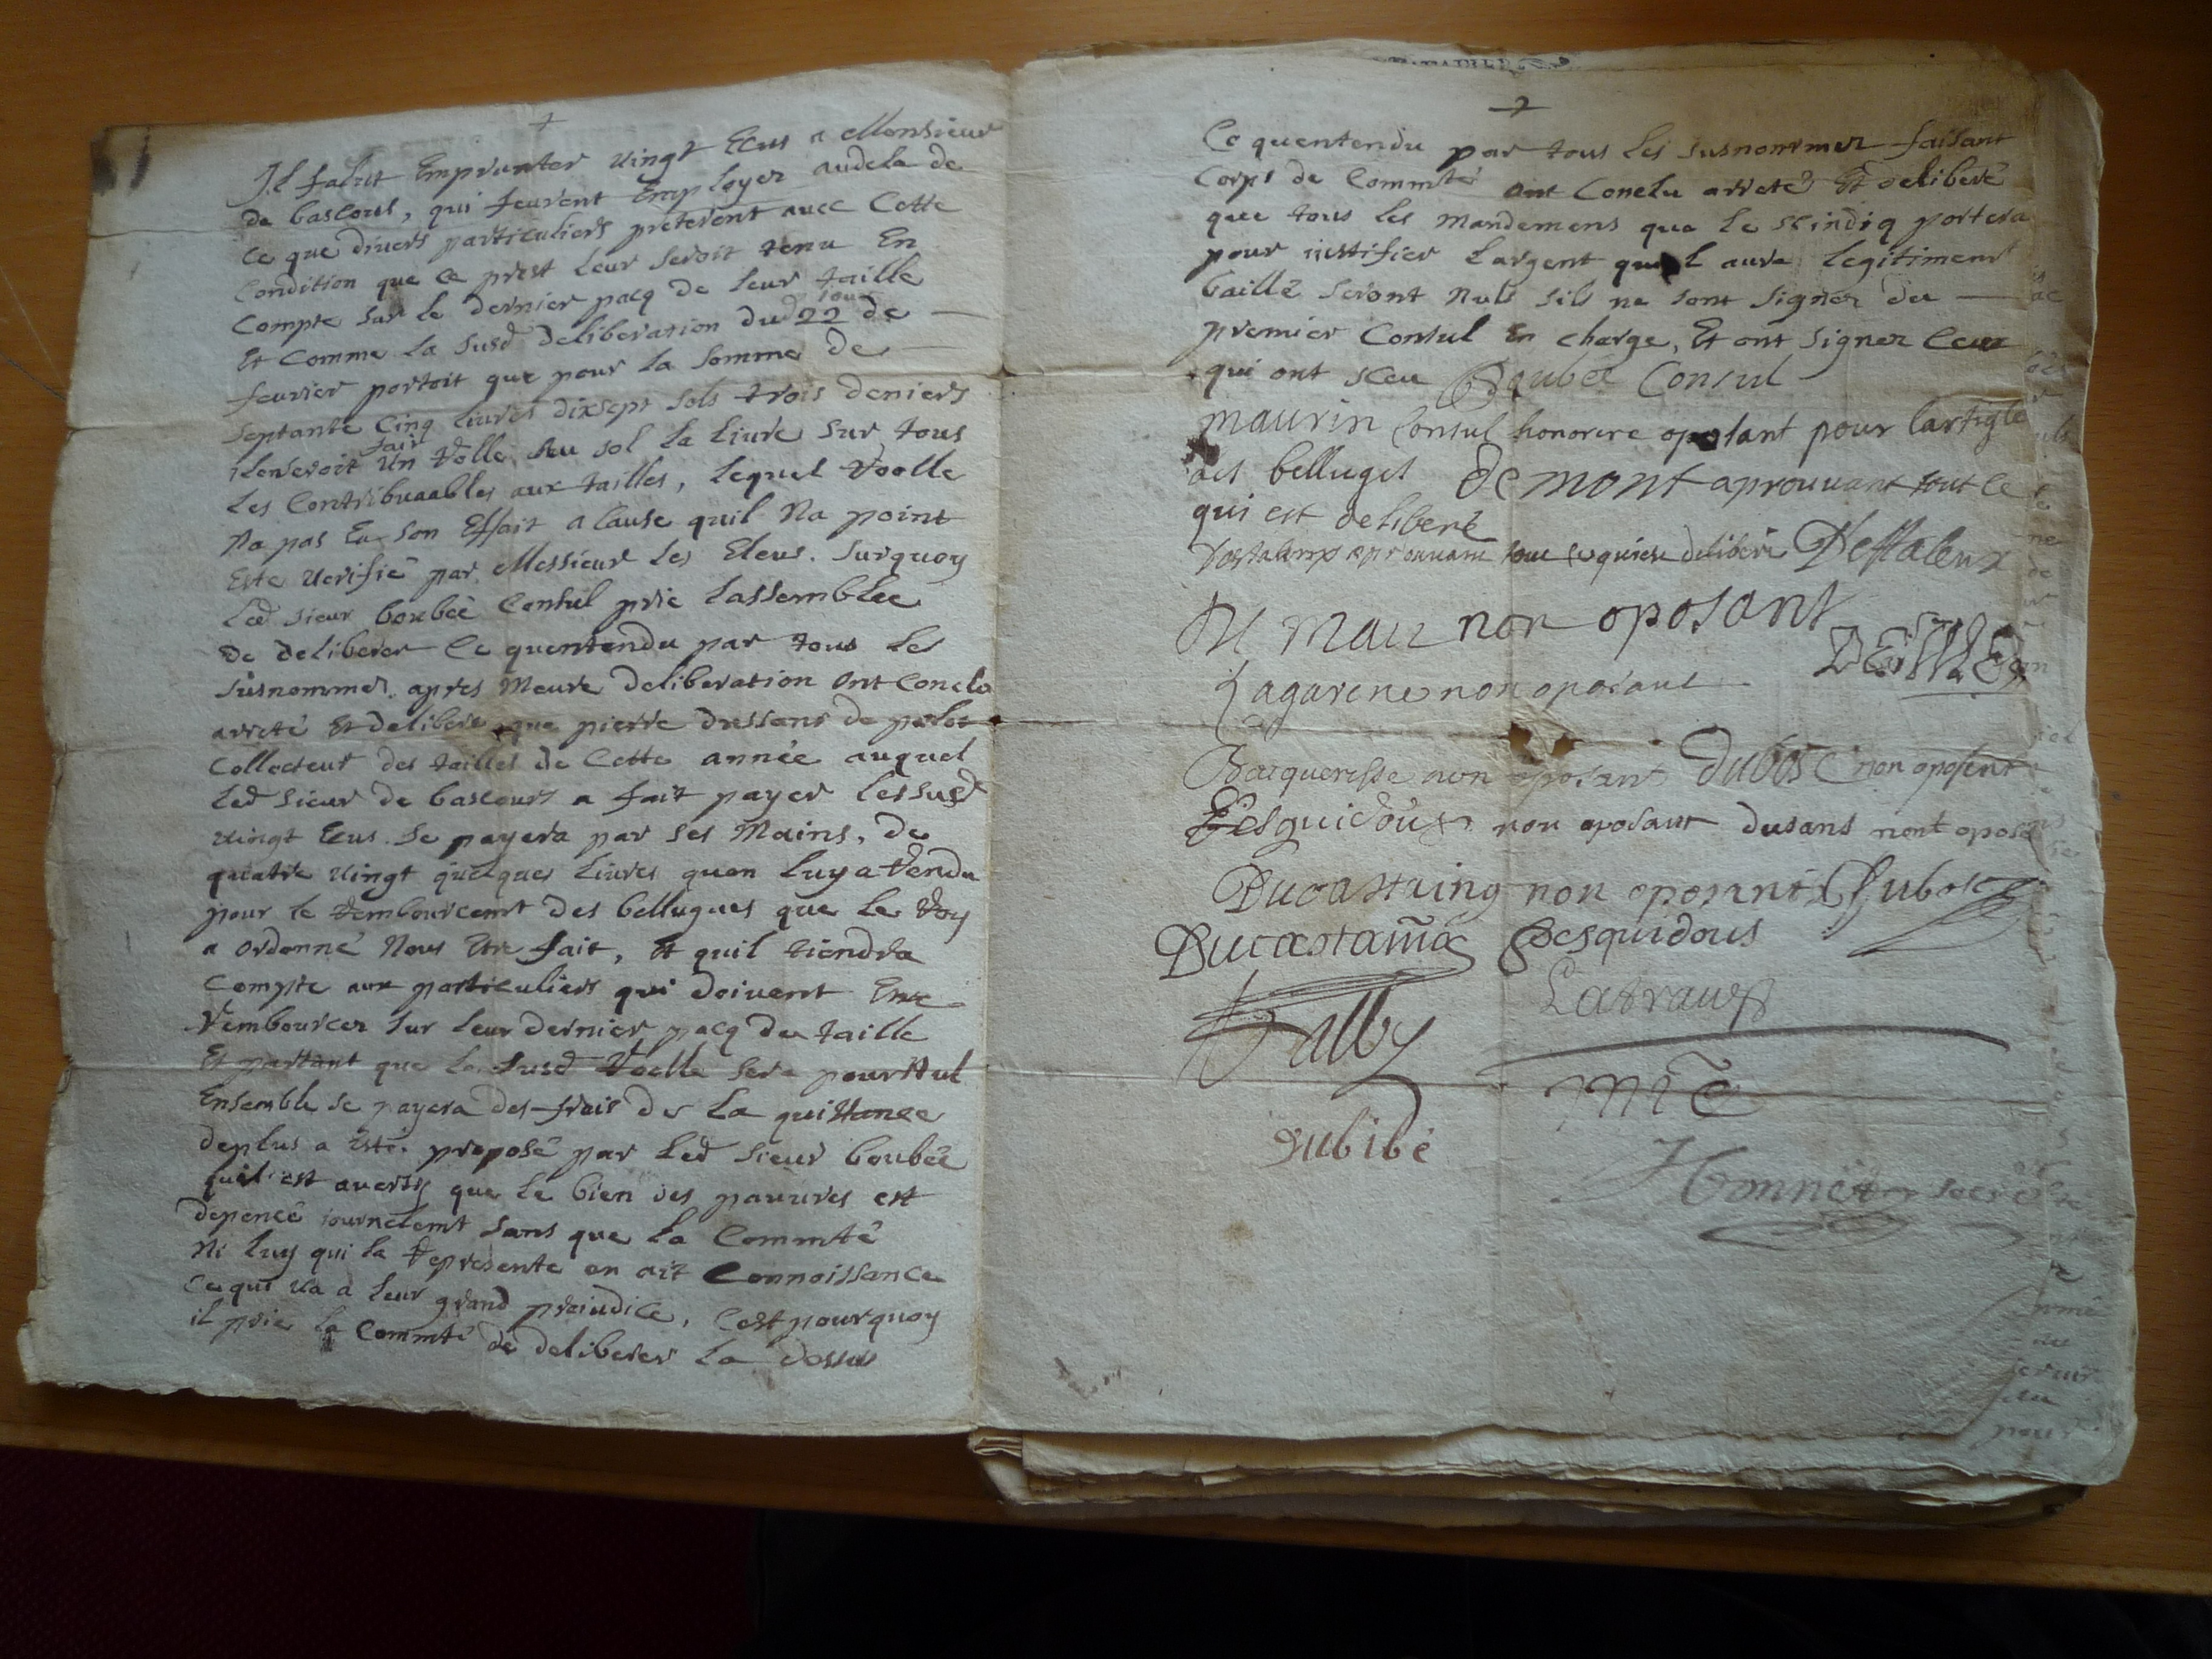 Il falut Emprunter vingt Ecus a Monsieur
de bascous, qui feurent Employez audela de
ce que divers particuliers preterent avec Cette
Condition que ce prest leur seroit tenu En
Compte sur le dernier pacq de leur taille
Et comme la susd deliberation dud jour 22 de
fevrier portoit que pour la somme de
septante Cinq livres dixsept sols trois deniers
ilenseroit fair Un rolle au sol la livre sur tous
les Contribuaables aux tailles, lequel roolle
Na pas Eu son Effait a Cause quil Na point
Este verifié par Messieurs les Eleus. Surquoy
led sieur boubée Consul prie lassemblée
de deliberer Ce quentendu par tous les
susnommez apres meure deliberation ont Conclu
arreté Et deliberé que pierre dussans de
Collecteur des tailles de Cette année auquel
led sieur de bascous a fait payer lessusd
vingt Ecus se payera par ses Mains, de
quatre vingt quelques livres quon luy a rendu
pour le remboursemt des bellugues que le Roy
a ordonné Nous Etre fait, Et quil tiendra
Compte aux particuliers qui doivent Etre
rembourcez sur leur dernier pacq de taille
Et partant que le susd roolle sera pour Nul
Ensemble se payera des frais de la quittance
deplus a Esté proposé par led sieur boubée
quil est averty que le bien des pauvres est
depencé journelemt sans que la Commté
Ni luy qui la represente en ait Connoissance
Ce qui va a leur grand prejudice, Cest pourquoy
il prie la Commté de deliberer la dessus
Ce quentendu par tous les susnommez faisant
Corps de Commté ont Conclu arreté Et deliberé
que tous les mandemens que le scindiq portera
pour justifier l'argent quil aura legitimemt
baillé seront Nuls sils ne sont signez du
premier Consul En charge, Et ont signez Ceux
qui ont sceu Boubée Consul
maurin Consul honorere oposant pour lartigle
des belluges de mont aprouvant tout ce
qui est deliberé
aprouvant tout ce quiest deliberé
mau non oposant
Lagarene non oposant
non oposant dubosc non oposent
Besquidous non oposant dusans nont oposé
Ducastaing non oposant Dubosc
Ducastaing Besquidous
dubibé
secre